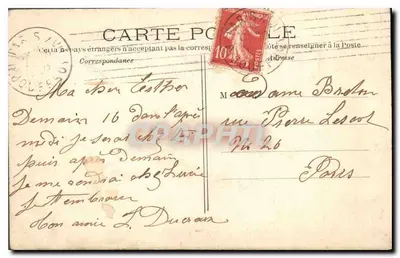 CARTE POSTALE
Tous les pays étrangers n'acceptent pas la correspondance
se renseigner à la Poste
Correspondance
Adresse
10
Ma chère Esther
Demain 16 dans l'après
midi je serai chez
puis après Demain
Je me rendrai chez Lucie
Je t'embrasse
Ton amie L. Ducroux
Madame Breton
rue Pierre Lescot
No 20
Paris